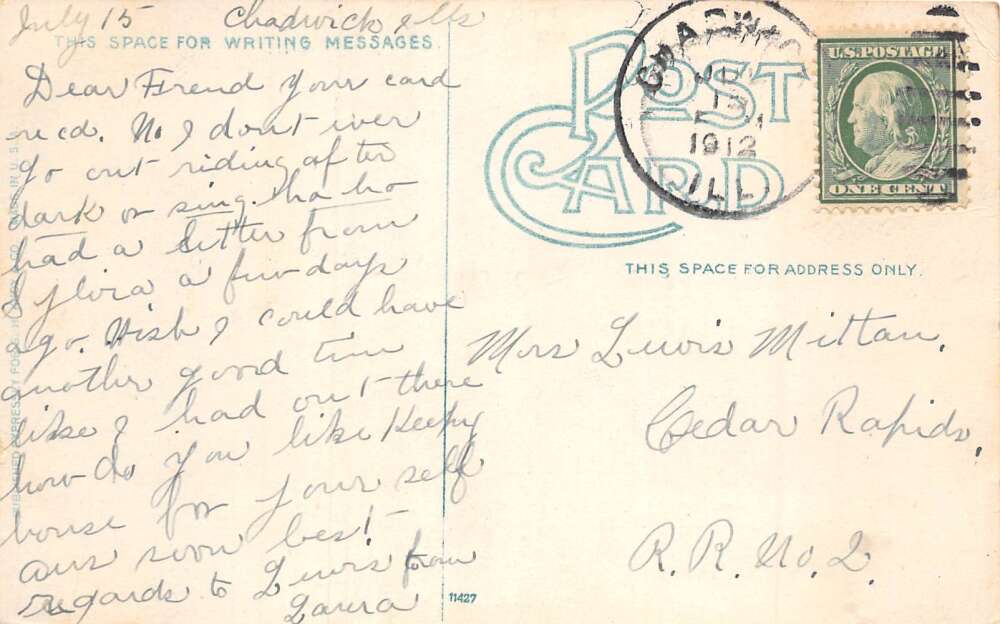 July 15 Chadwick Ills
THIS SPACE FOR WRITING MESSAGES
Dear Frend your card
recd. No I dont ever
go out riding after
dark or sing. ha ho
had a letter from
Flora a few days
ago. Wish I could have
another good time
like I had out there
how do you like Keeping
house for your self
ans soon best
regards to Lewis from
Laura
11427
POST CARD
CHADWICK
JUL
15
1912
ILL.
U.S. POSTAGE
ONE CENT
THIS SPACE FOR ADDRESS ONLY.
Mrs Lewis Mittan,
Cedar Rapids,
R. R. No. 2.